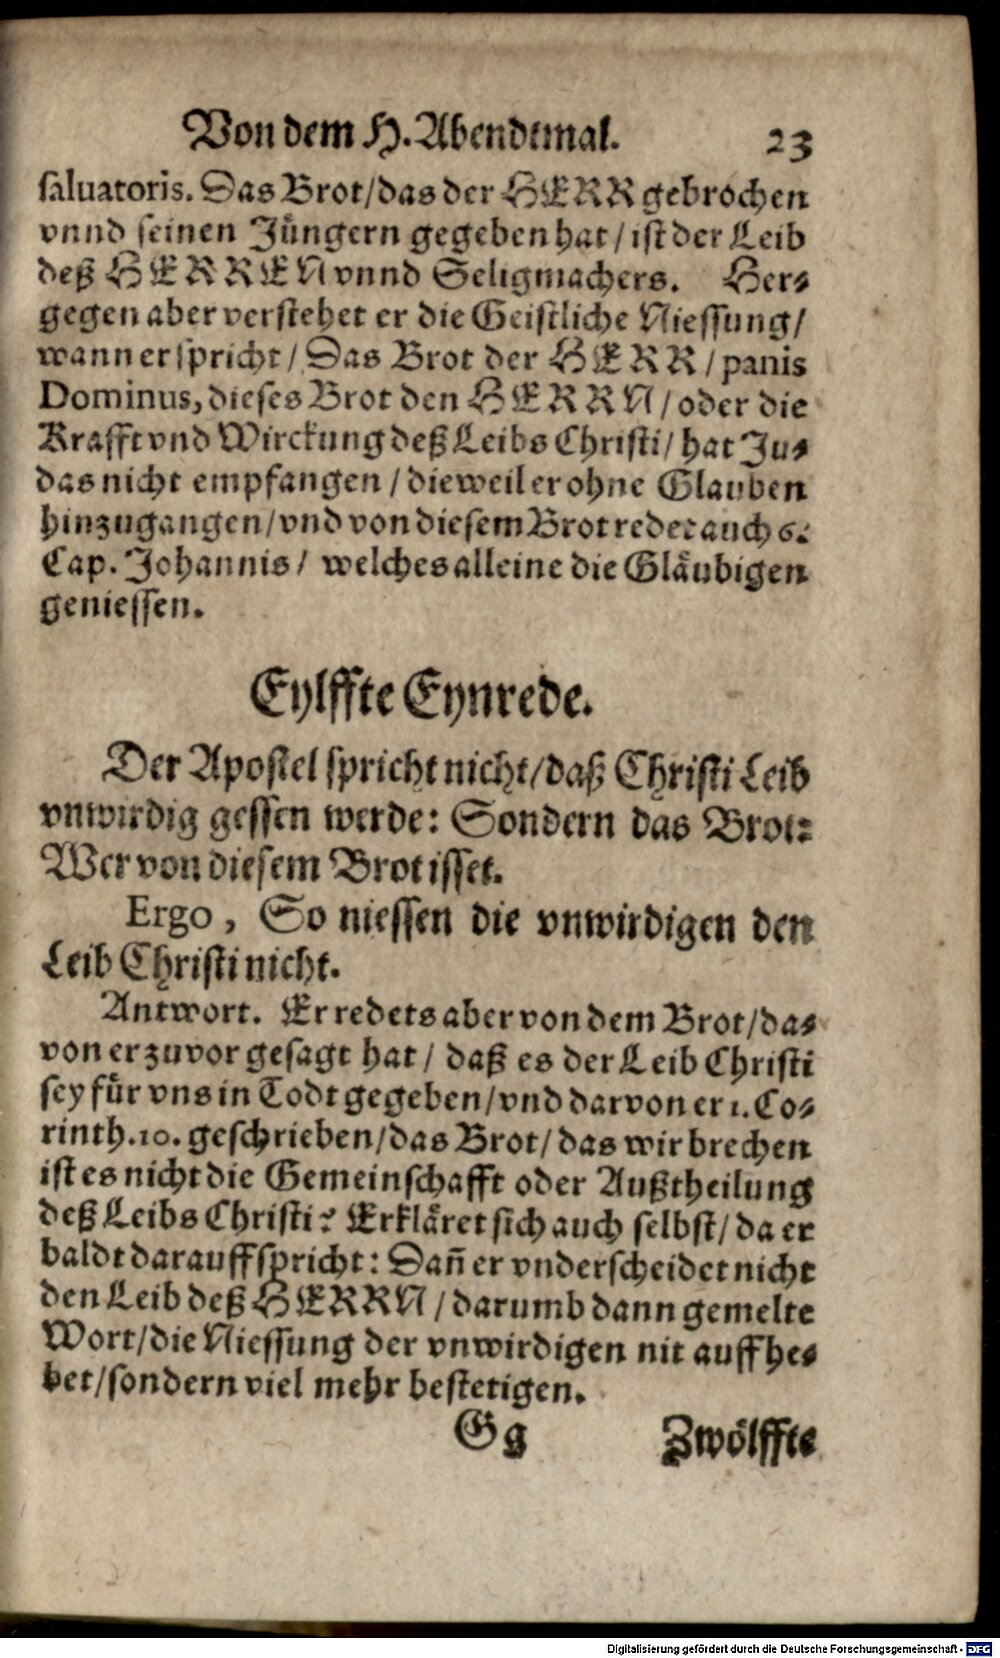 Von dem H. Abendtmal. 23
saluatoris. Das Brot/das der HERR gebrochen
vnnd seinen Jüngern gegeben hat/ist der Leib
deß HERREN vnnd Seligmachers. Her-
gegen aber verstehet er die Geistliche Niessung/
wann er spricht/Das Brot der HERR/panis
Dominus, dieses Brot den HERRN/oder die
Krafft vnd Wirckung deß Leibs Christi/hat Ju-
das nicht empfangen/dieweil er ohne Glauben
hinzugangen/vnd von diesem Brot redet auch 6.
Cap. Johannis/ welches alleine die Gläubigen
geniessen.
Eylffte Eynrede.
Der Apostel spricht nicht/daß Christi Leib
vnwirdig gessen werde: Sondern das Brot:
Wer von diesem Brot isset.
Ergo, So niessen die vnwirdigen den
Leib Christi nicht.
Antwort. Er redets aber von dem Brot/da-
von er zuvor gesagt hat/ daß es der Leib Christi
sey für vns in Todt gegeben/vnd darvon er 1. Co-
rinth. 10. geschrieben/das Brot/das wir brechen
ist es nicht die Gemeinschafft oder Außtheilung
deß Leibs Christi? Erkläret sich auch selbst/da er
baldt darauff spricht: Dañ er vnderscheidet nicht
den Leib deß HERRN/darumb dann gemelte
Wort/die Niessung der vnwirdigen nit auffhe-
bet/sondern viel mehr bestetigen.
Gg Zwölffte
Digitalisierung gefördert durch die Deutsche Forschungsgemeinschaft - DFG